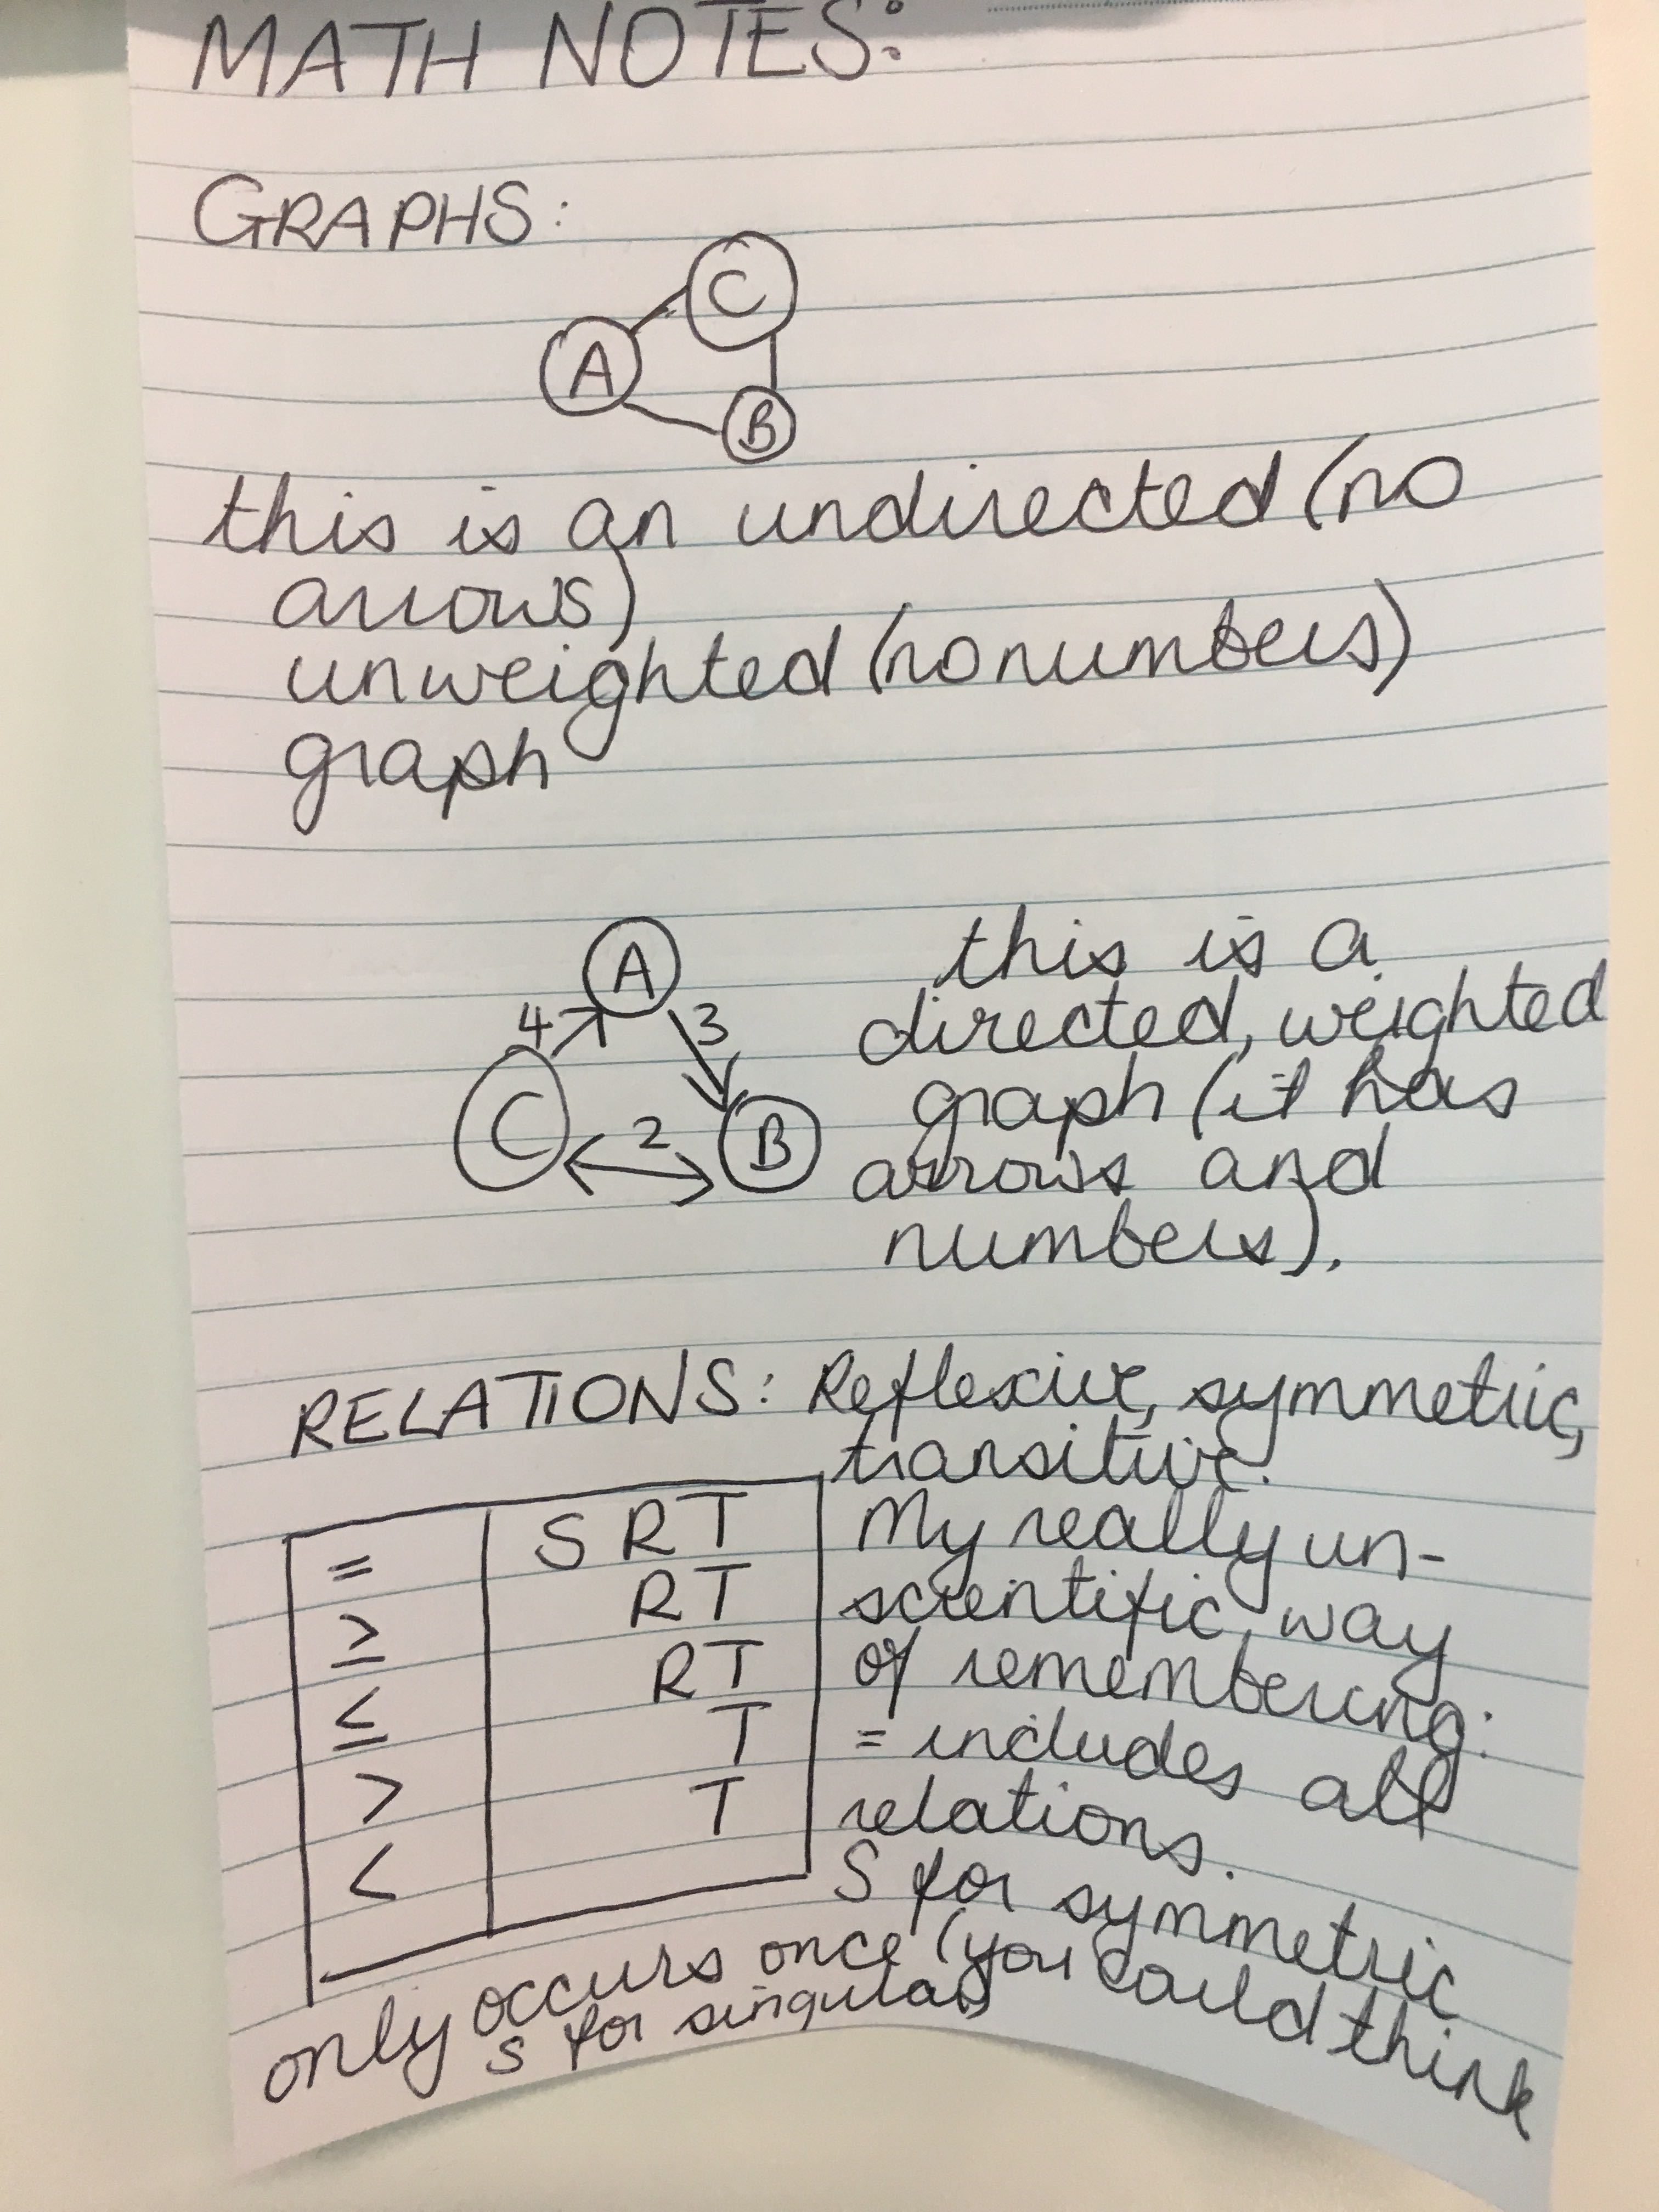 MATH NOTES:
GRAPHS:
C
A
B
this is an undirected (no
arrows)
unweighted (no numbers)
graph
A
4 3
C 2 B
this is a
directed, weighted
graph (it has
arrows and
numbers).
RELATIONS: Reflexive, symmetric,
transitive.
= S R T
≥ R T
≤ R T
> T
< T
My really un-
scientific way
of remembering:
= includes all
relations.
S for symmetric
only occurs once (you could think
S for singular)